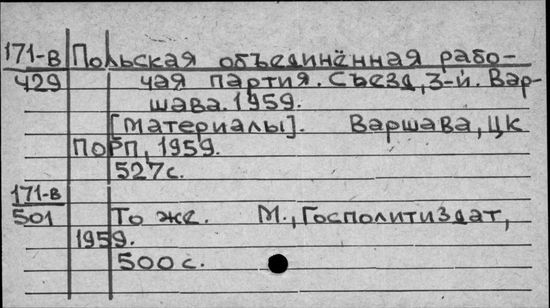 171-В Польская объединённая рабо-
429 чая партия. Съезд, 3-й. Вар-
шава. 1959.
[Материалы]. Варшава, ЦК
ПОРП, 1959.
527 с.
171-В
501 То же. М., Госполитиздат,
1959.
500 с.